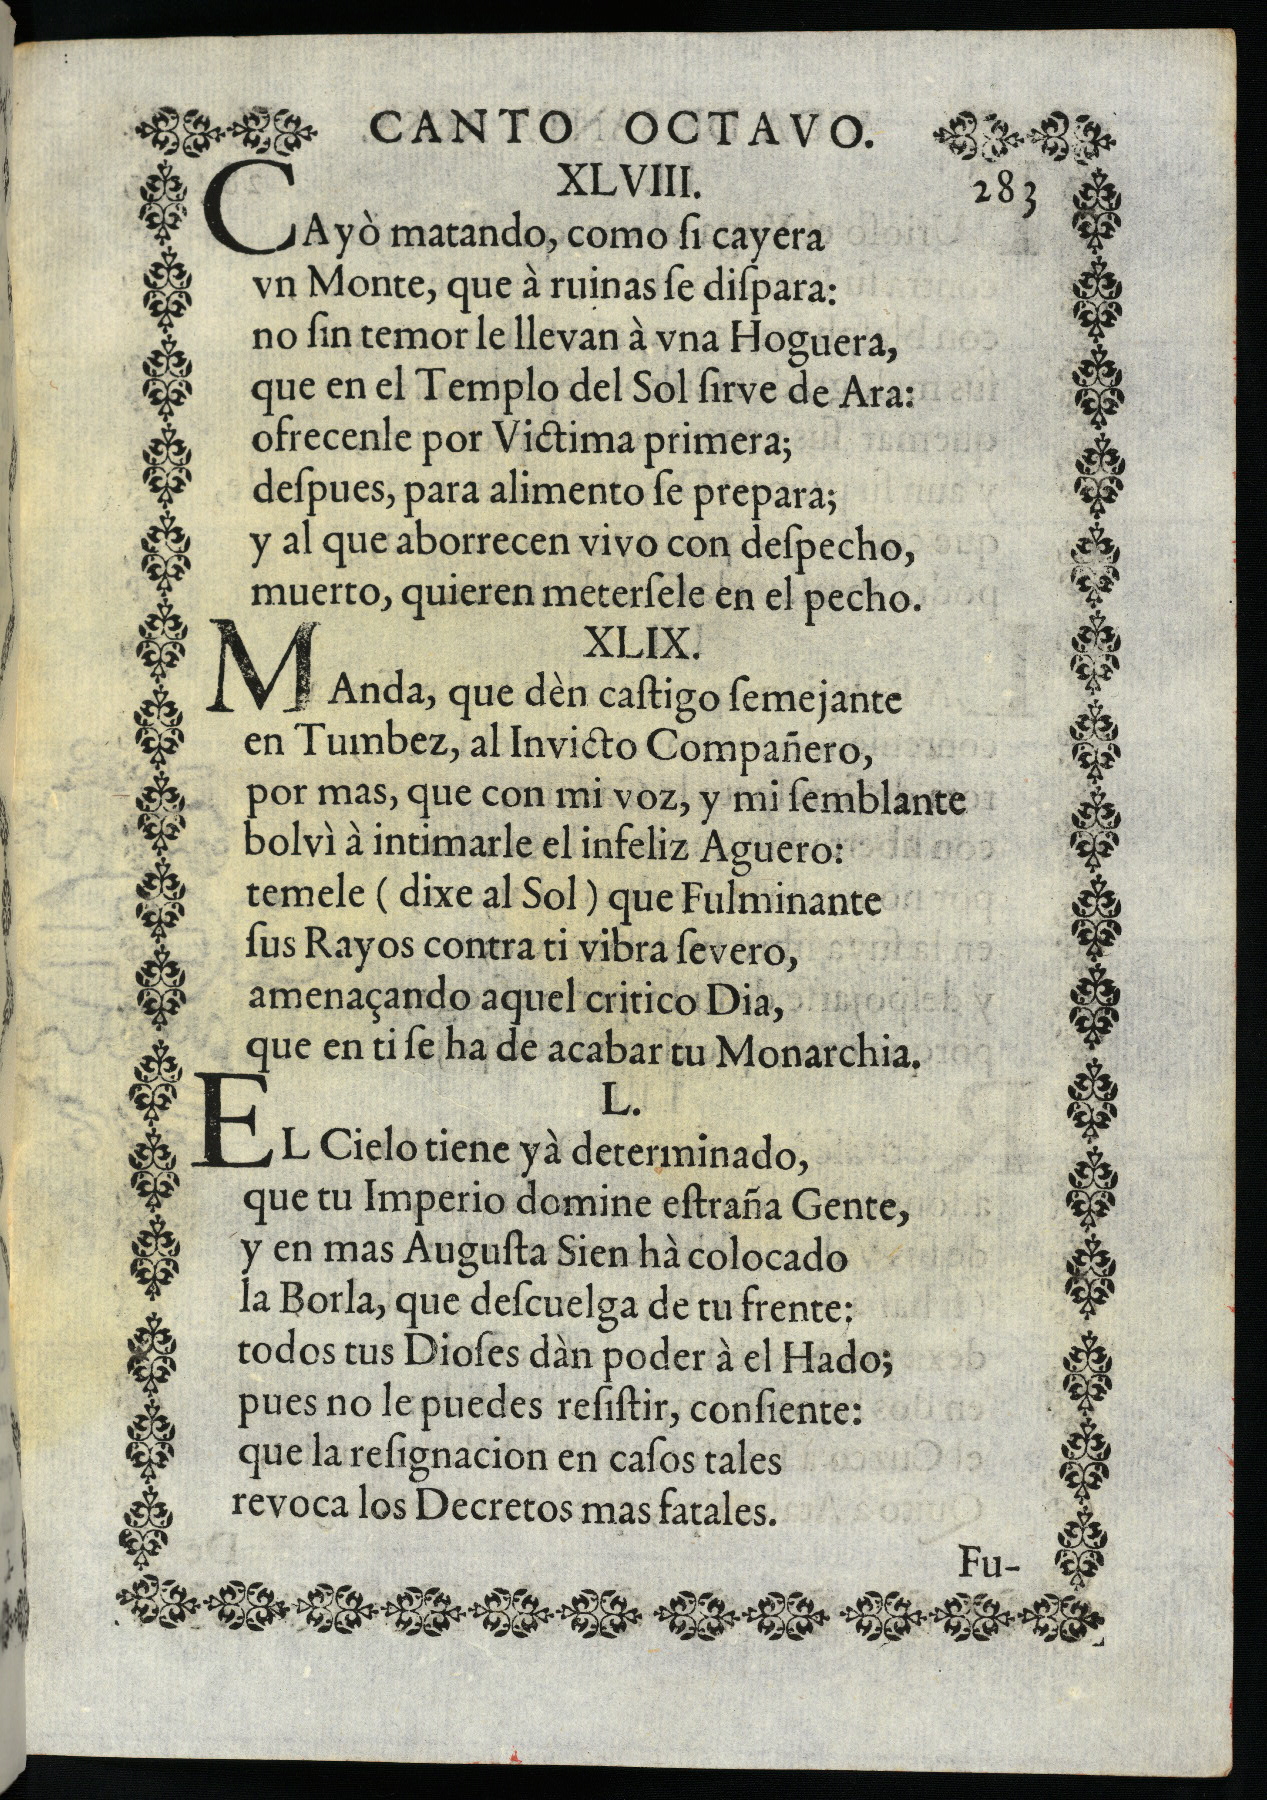 CANTO OCTAVO.
XLVIII.
283
CAyò matando, como ſi cayera
vn Monte, que à ruinas ſe diſpara:
no ſin temor le llevan à vna Hoguera,
que en el Templo del Sol ſirve de Ara:
ofrecenle por Victima primera;
deſpues, para alimento ſe prepara;
y al que aborrecen vivo con deſpecho,
muerto, quieren meterſele en el pecho.
XLIX.
MAnda, que dèn caſtigo ſemejante
en Tumbez, al Invicto Compañero,
por mas, que con mi voz, y mi ſemblante
bolvì à intimarle el infeliz Aguero:
temele ( dixe al Sol ) que Fulminante
ſus Rayos contra ti vibra ſevero,
amenaçando aquel critico Dia,
que en ti ſe ha de acabar tu Monarchia.
L.
EL Cielo tiene yà determinado,
que tu Imperio domine eſtraña Gente,
y en mas Auguſta Sien hà colocado
la Borla, que deſcuelga de tu frente:
todos tus Dioſes dàn poder à el Hado;
pues no le puedes reſiſtir, conſiente:
que la reſignacion en caſos tales
revoca los Decretos mas fatales.
Fu-